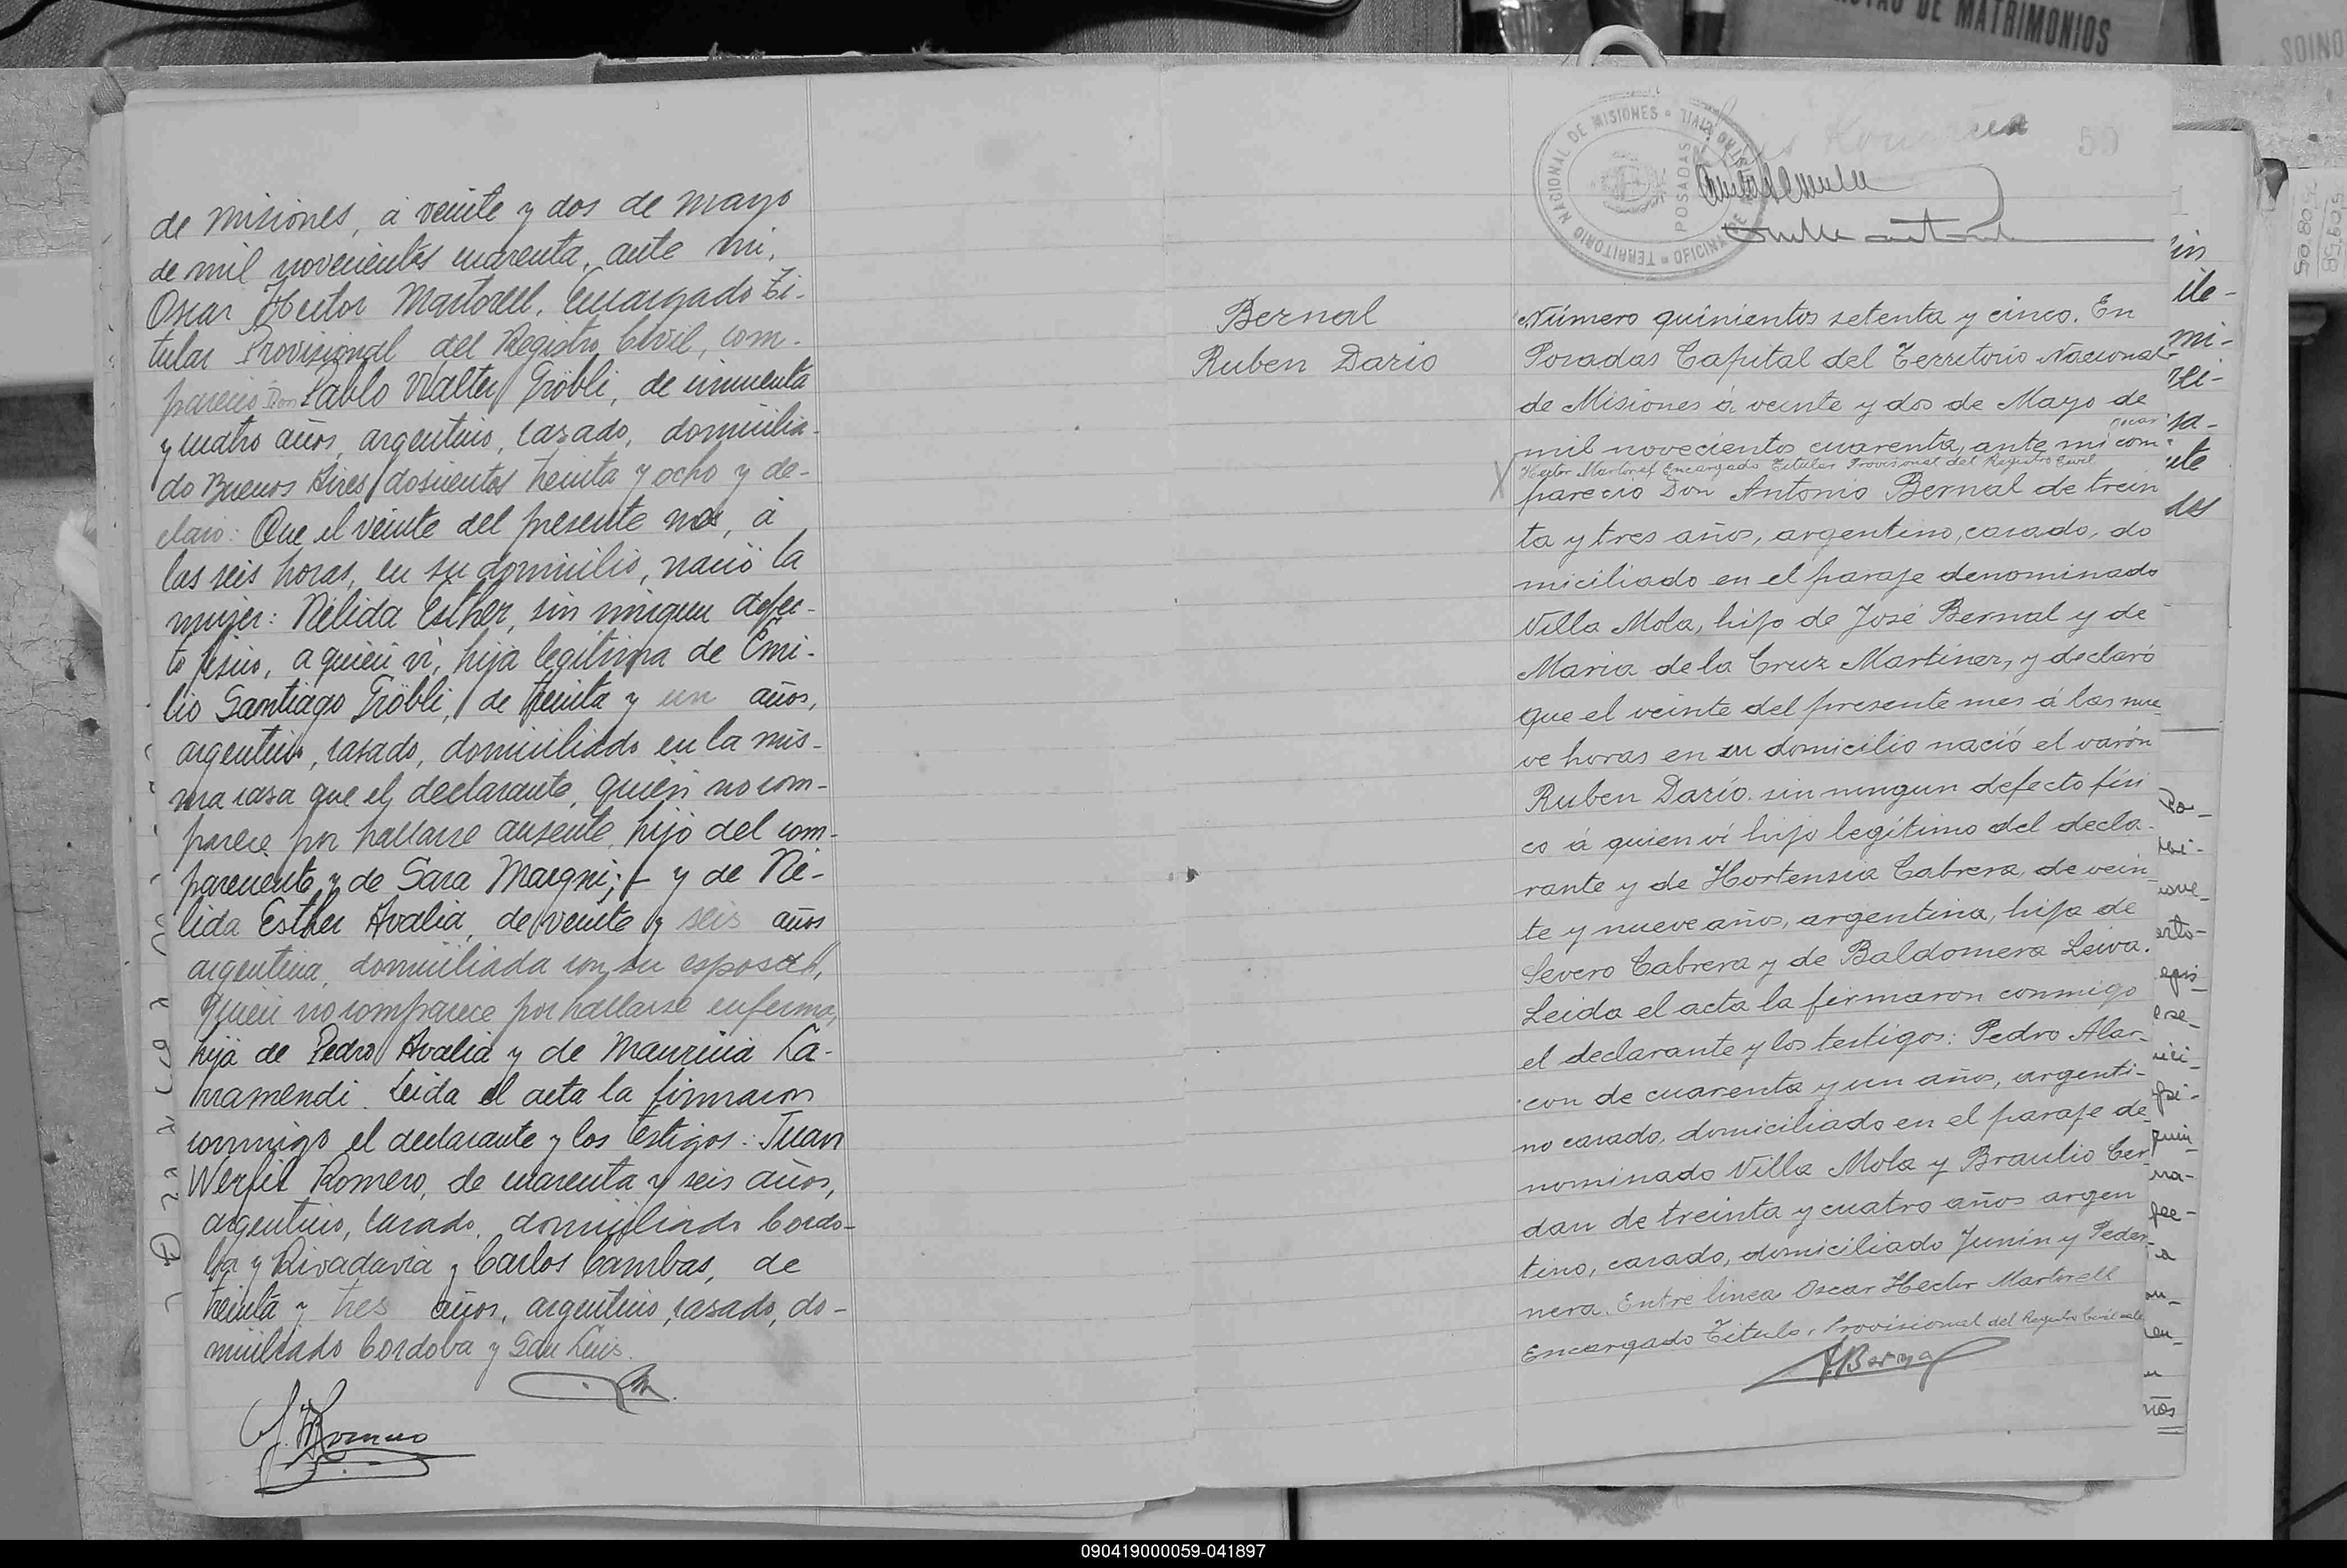 DE MATRIMONIOS
de misiones, á veinte y dos de mayo
de mil novecientos cuarenta, ante mi,
Oscar Hector Martorell, Encargado Ti-
tular Provisional del Registro Civil, com-
pareció Don Pablo Walter Gröbli, de cincuenta
y cuatro años, argentino, casado, domicilia-
do Buenos Aires dosientos treinta y ocho y de-
claró: Que el veinte del presente mes, á
las seis horas, en su domicilio, nació la
mujer: Nélida Esther, sin ningun defec-
to fisico, a quien vi, hija legitima de Emi-
lio Santiago Gröbli, de treinta y un años,
argentino, casado, domiciliado en la mis-
ma casa que el declarante, quien no com-
parece por hallarse ausente, hijo del com-
pareciente y de Sara Maegni; - y de Né-
lida Esther Avalia, de veinte y seis años
argentina, domiciliada con su esposo,
quien no comparece por hallarse enferma,
hija de Pedro Avalia y de Mauricia La-
rramendi. Leida el acta la firmaron
conmigo el declarante y los testigos: Juan
Werfil Romero, de cuarenta y seis años,
argentino, casado, domiciliado Cordo-
ba y Rivadavia y Carlos Cambas, de
treinta y tres años, argentino, casado, do-
miciliado Cordoba y San Luis.
J. W. Romero
TERRITORIO NACIONAL DE MISIONES
REGISTRO CIVIL
OFICINA DE
POSADAS
50
Bernal
Ruben Dario
Número quinientos setenta y cinco. En
Posadas Capital del Territorio Nacional
de Misiones á veinte y dos de Mayo de
mil novecientos cuarenta, ante mi com-
Oscar
Hector Martorell Encargado Titular Provisional del Registro Civil
pareció Don Antonio Bernal de trein
ta y tres años, argentino, casado, do
miciliado en el paraje denominado
Villa Mola, hijo de José Bernal y de
Maria de la Cruz Martinez, y declaró
que el veinte del presente mes á las nue
ve horas en su domicilio nació el varón
Ruben Darío. sin ningun defecto físi
co á quien ví hijo legítimo del decla-
rante y de Hortensia Cabrera, de vein
te y nueve años, argentina, hija de
Severo Cabrera y de Baldomera Leiva.
Leida el acta la firmaron conmigo
el declarante y los testigos: Pedro Alar-
con de cuarenta y un años, argenti-
no casado, domiciliado en el paraje de
nominado Villa Mola y Braulio Cer
dan de treinta y cuatro años argen
tino, casado, domiciliado Junin y Peder
nera. Entre linea Oscar Hector Martorell
Encargado Titular Provisional del Registro Civil vale
A. Bernal
090419000059-041897